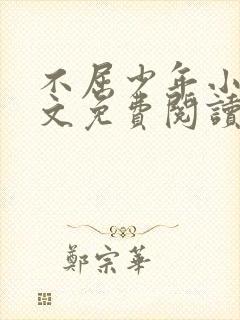 不屈少年小
文免費閱讀
鄭宗華